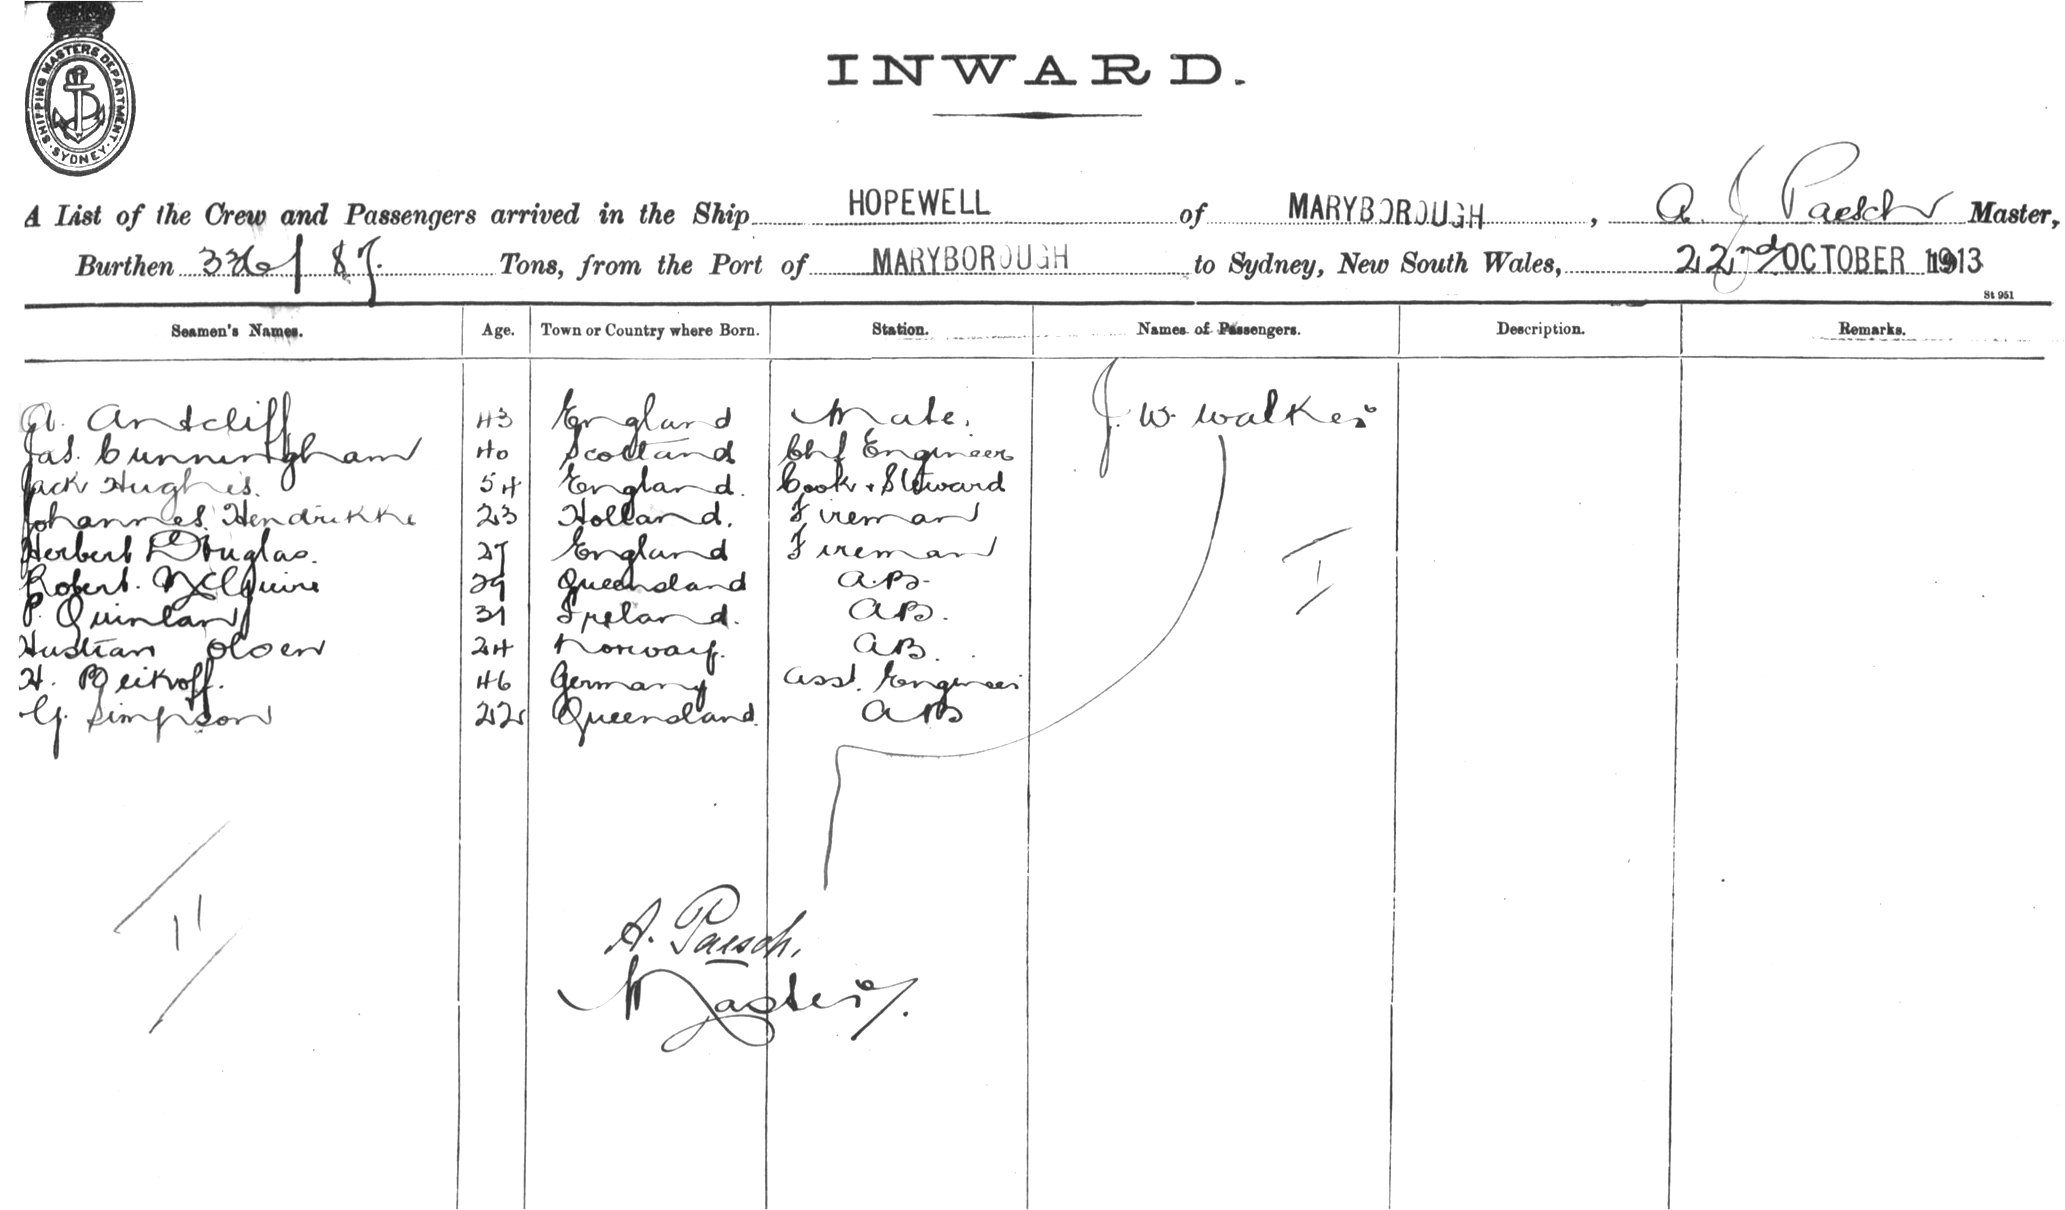 SHIPPING MASTERS DEPARTMENT
SYDNEY
INWARD.
A List of the Crew and Passengers arrived in the Ship HOPEWELL of MARYBOROUGH, A J Paesch Master,
Burthen 336/87. Tons, from the Port of MARYBOROUGH to Sydney, New South Wales, 22nd OCTOBER 1913
St 951
Seamen's Names. Age. Town or Country where Born. Station. Names of Passengers. Description. Remarks.
A. Antcliff 43 England Mate. J. W. Walker
Jas. Cunningham 40 Scotland Chf Engineer
Jack Hughes. 54 England. Cook & Steward
Johannes Hendrikke 23 Holland. Fireman
Herbert Douglas. 27 England Fireman
Robert. McGuire 29 Queensland A.B.
P. Quinlan 31 Ireland. AB.
Olsen 24 Norway. AB.
H. 46 Germany Asst. Engineer
G. Simpson 22 Queensland. AB
I
11
A. Paesch.
Master.